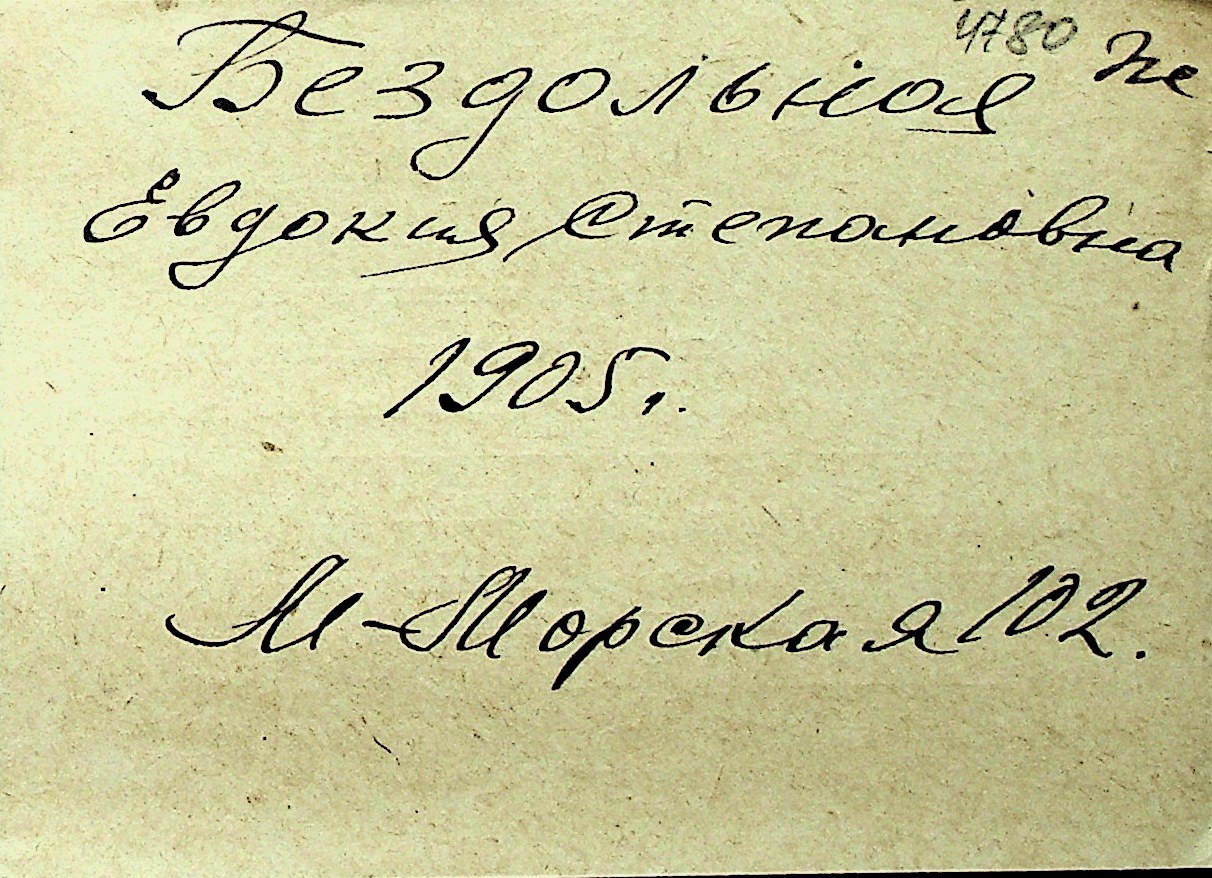 4780 Не
Бездольная
Евдокия Степановна
1905 г.
М-Морская 102.